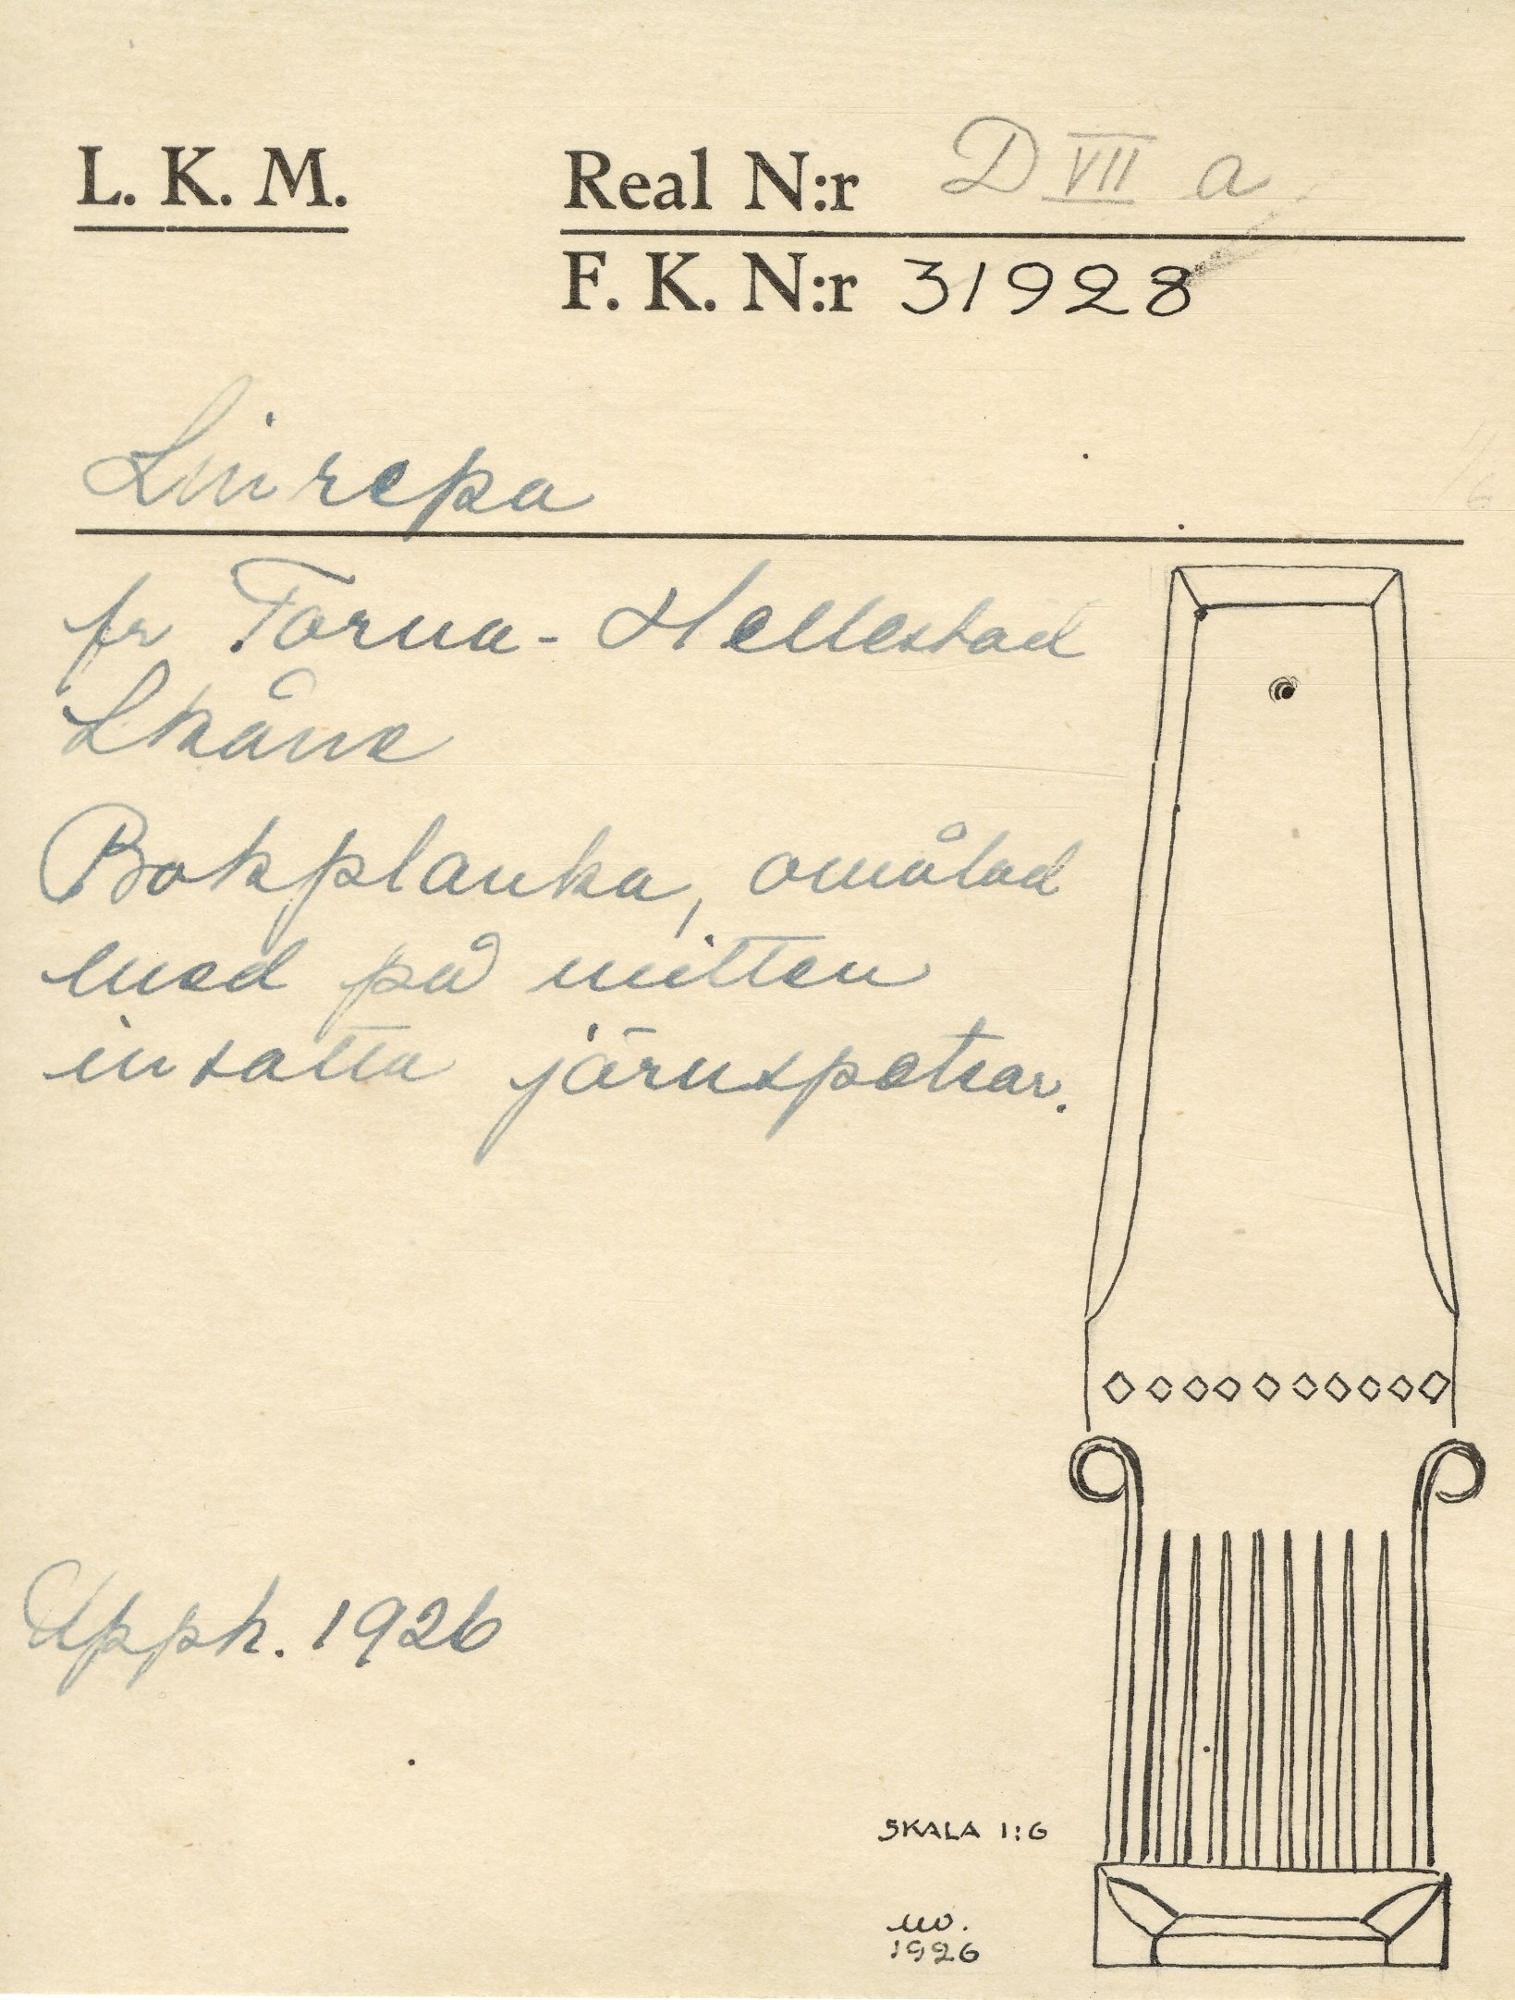 L. K. M.
Real N:r D VII a
F. K. N:r 31928
Linrepa
fr Torna-Hellestad
Skåne
Bokplanka, omålad
med på mitten
insatta järnspetsar.
Upph. 1926
SKALA 1:6
1926